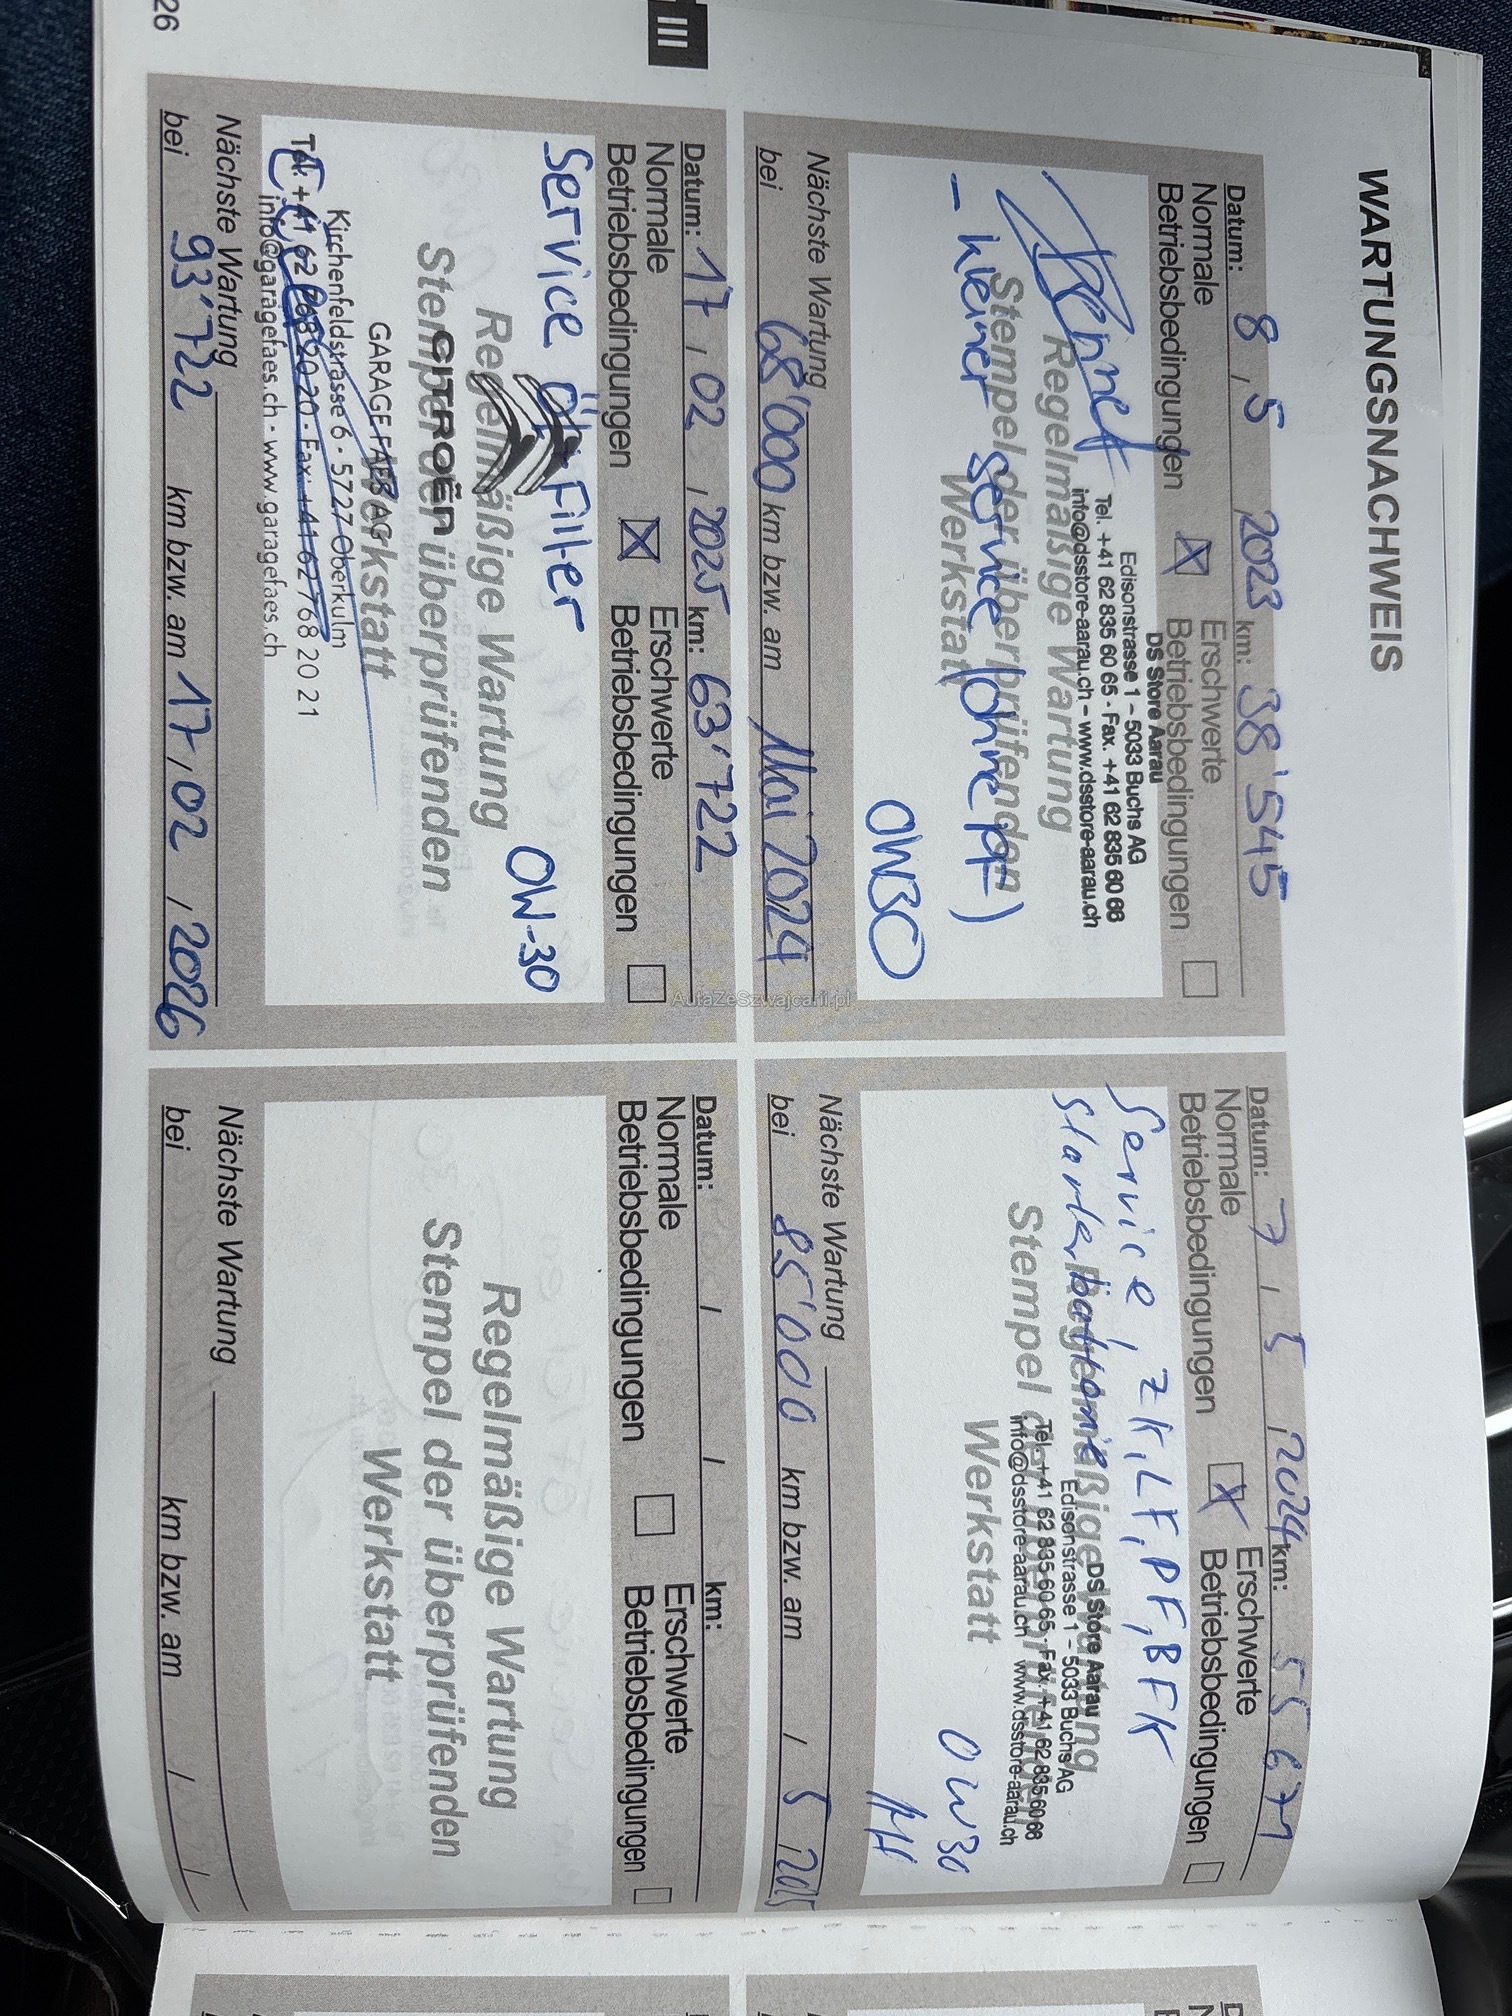 WARTUNGSNACHWEIS
Datum: 8, 5 2023 km: 38'545
Normale Betriebsbedingungen X Erschwerte Betriebsbedingungen
Regelmäßige Wartung
Stempel der überprüfenden
Werkstatt
DS Store Aarau
Edisonstrasse 1 – 5033 Buchs AG
Tel. +41 62 835 60 65 - Fax. +41 62 835 60 66
info@dsstore-aarau.ch – www.dsstore-aarau.ch
- kleiner Service (ohne PF)
0W30
Nächste Wartung
bei 68'000 km bzw. am Mai 2024
Datum: 7, 5, 2024 km: 55 671
Normale Betriebsbedingungen X Erschwerte Betriebsbedingungen
Service, ZK, LF, PF, BFK
Starterbatterie
Regelmäßige Wartung
Stempel der überprüfenden
Werkstatt
DS Store Aarau
Edisonstrasse 1 - 5033 Buchs AG
Tel. +41 62 835 60 65 - Fax. +41 62 835 60 66
info@dsstore-aarau.ch www.dsstore-aarau.ch
0W30
Nächste Wartung
bei 85'000 km bzw. am / 5 2025
Datum: 17, 02, 2025 km: 63'722
Normale Betriebsbedingungen X Erschwerte Betriebsbedingungen
Service Öl+Filter
0W-30
Regelmäßige Wartung
Stempel der überprüfenden
Werkstatt
CITROËN
GARAGE FAES AG
Kirchenfeldstrasse 6 · 5727 Oberkulm
Tel. +41 62 768 20 20 · Fax +41 62 768 20 21
info@garagefaes.ch · www.garagefaes.ch
Nächste Wartung
bei 93'722 km bzw. am 17, 02, 2026
Datum: / / km:
Normale Betriebsbedingungen Erschwerte Betriebsbedingungen
Regelmäßige Wartung
Stempel der überprüfenden
Werkstatt
Nächste Wartung
bei km bzw. am / /
III
26
AutaZeSzwajcarii.pl